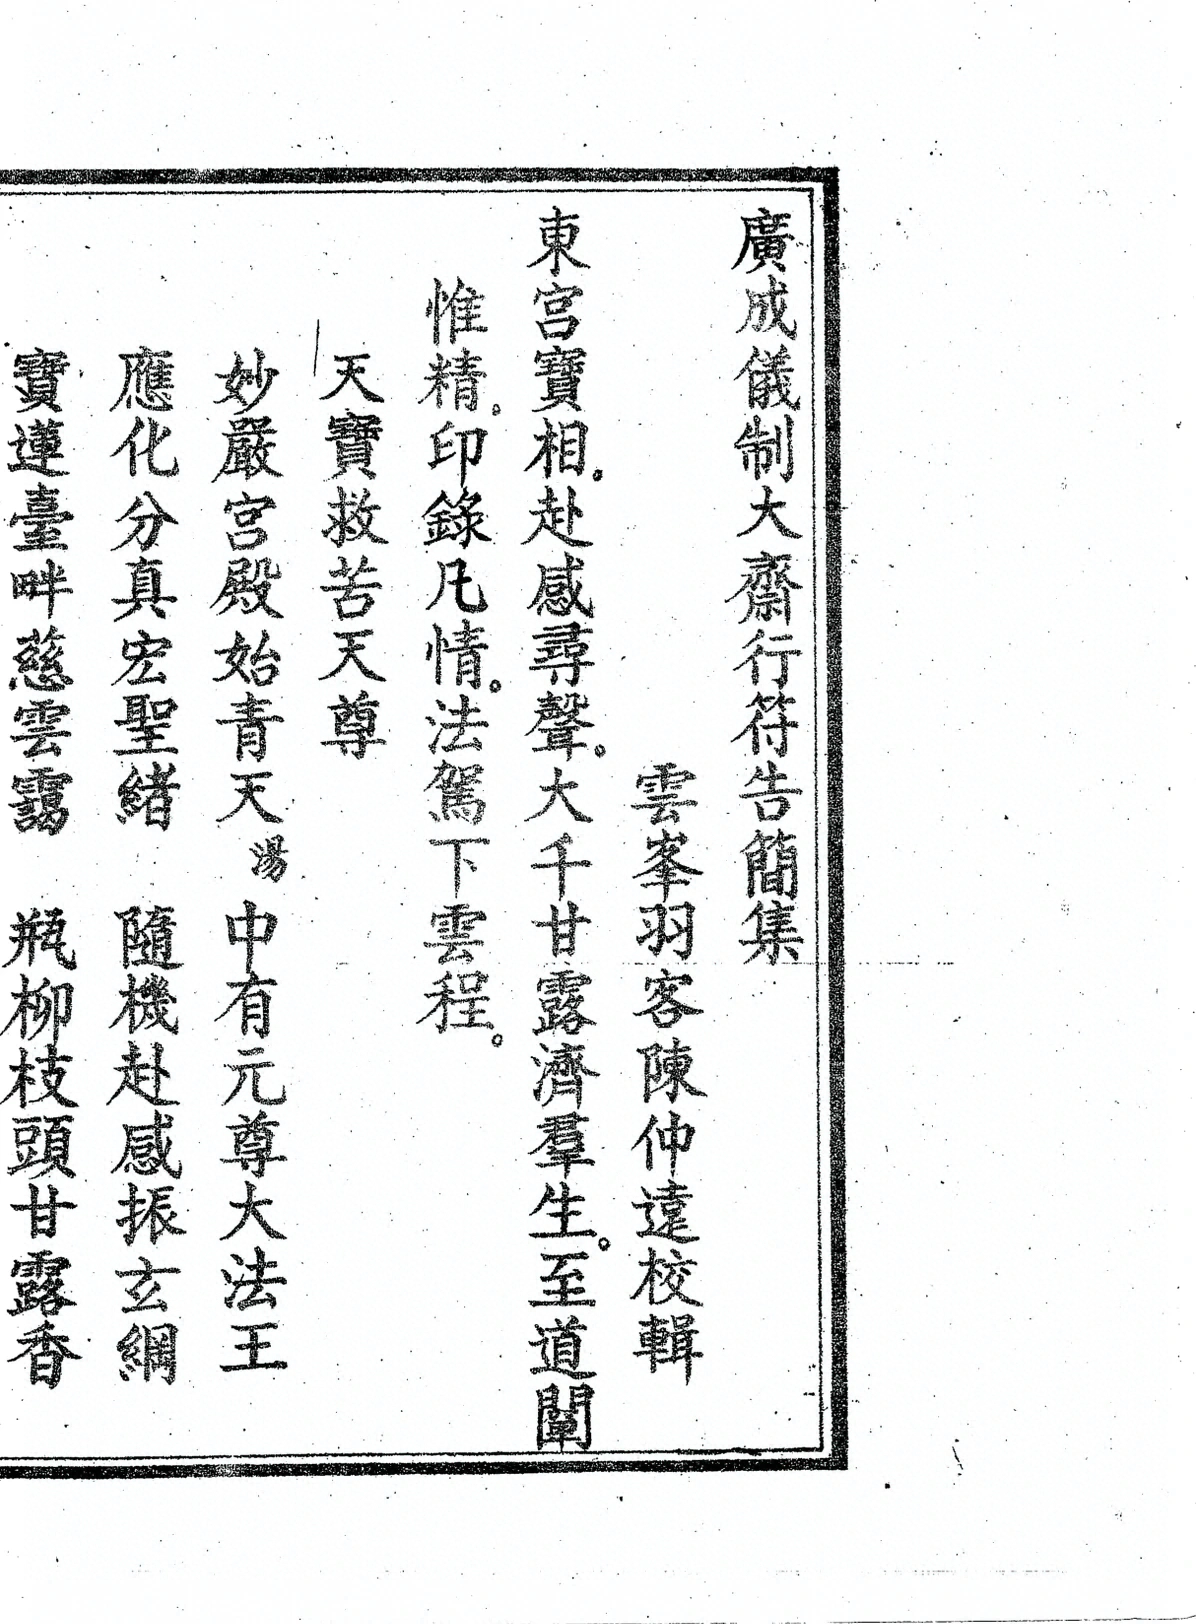 廣成儀制大齋行符告簡集
雲峯羽客陳仲遠校輯
東宮寶相。赴感尋聲。大千甘露濟羣生。至道闡
惟精。印錄凡情。法駕下雲程。
天寶救苦天尊
妙嚴宮殿始青天湯　中有元尊大法王
應化分真宏聖緒　隨機赴感振玄綱
寶蓮臺畔慈雲靄　瓶柳枝頭甘露香